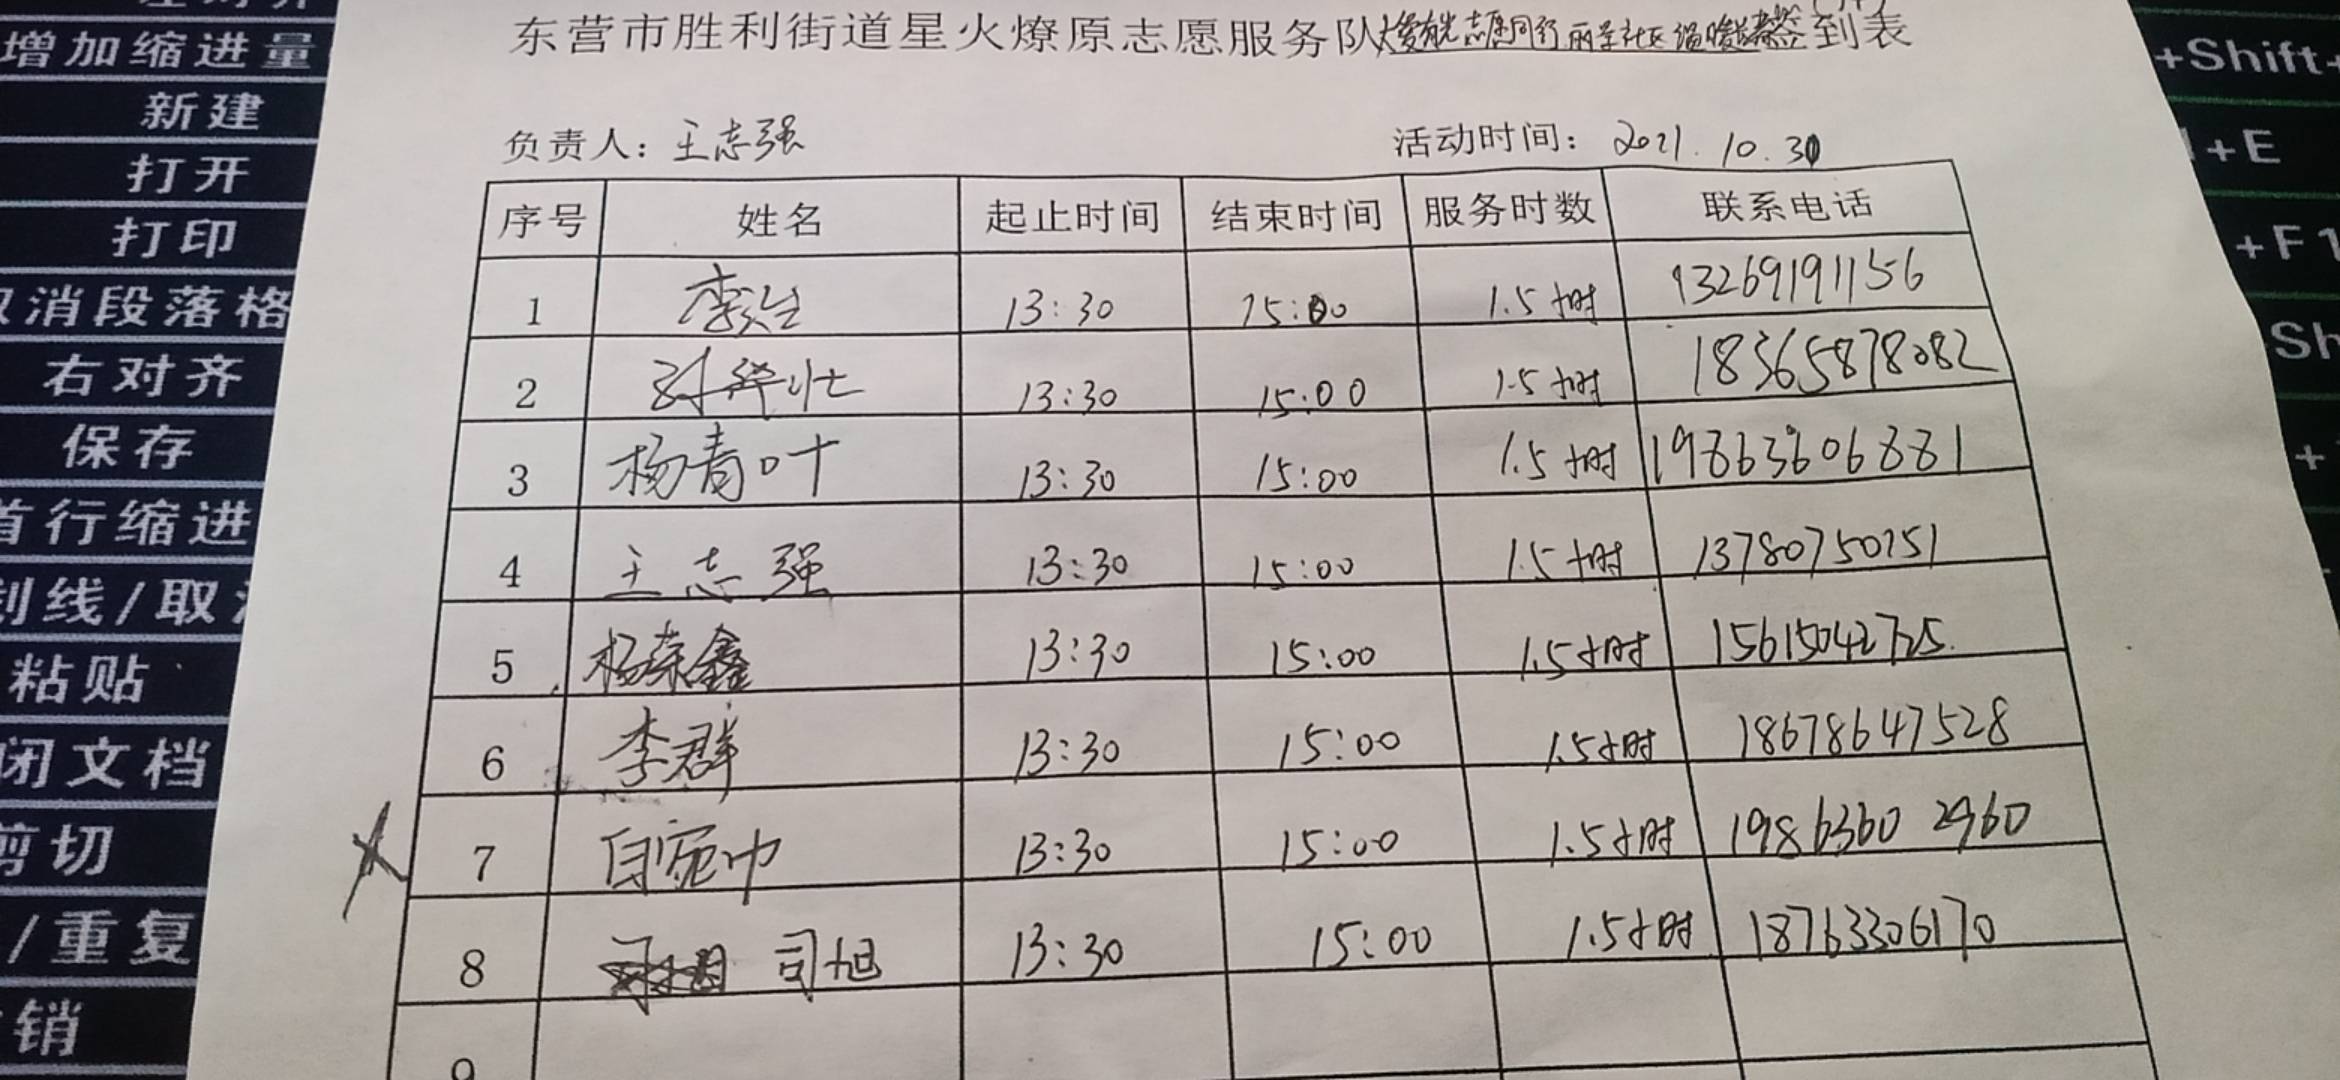 东营市胜利街道星火燎原志愿服务队大爱有光志愿同行丽星社区温暖 签到表
负责人：王志强 活动时间：2021.10.30
序号 姓名 起止时间 结束时间 服务时数 联系电话
1 13:30 15:00 1.5小时 13269191156
2 13:30 15:00 1.5小时 18365878082
3 杨青叶 13:30 15:00 1.5小时 19863606881
4 王志强 13:30 15:00 1.5小时 13780750751
5 杨荣鑫 13:30 15:00 1.5小时 15615042725
6 李群 13:30 15:00 1.5小时 18678647528
7 13:30 15:00 1.5小时 19863602960
8 司旭 13:30 15:00 1.5小时 18763306170
9
增加缩进量
新建
打开
打印
取消段落格
右对齐
保存
首行缩进
划线/取
粘贴
闭文档
剪切
/重复
销
+Shift+
+E
+F1
Sh
+